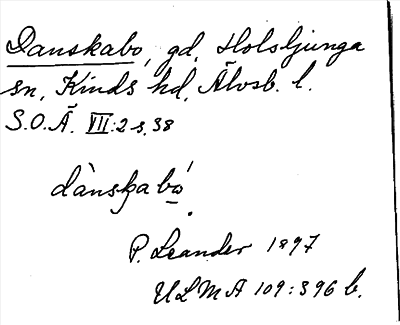 Danskabo, gd, Holsljunga
sn, Kinds hd, Älvsb. l.
S.O.Ä. VII:2 s. 38
dànskabó
P. Leander 1897
ULMA 109:396 b.